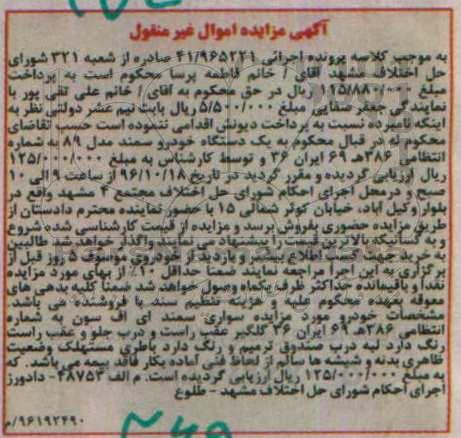 آگهی مزایده اموال غیر منقول
به موجب کلاسه پرونده اجرائی ۴۱/۹۶۵۲۲۱ صادره از شعبه ۳۲۱ شورای
حل اختلاف مشهد آقای / خانم فاطمه پرسا محکوم است به پرداخت
مبلغ ۱۱۵/۸۸۰/۰۰۰ ریال در حق محکوم به آقای / خانم علی تقی پور با
نمایندگی جعفر صفایی مبلغ ۵/۵۰۰/۰۰۰ ریال بابت نیم عشر دولتی نظر به
اینکه نامبرده نسبت به پرداخت دیونش اقدامی ننموده است حسب تقاضای
محکوم له در قبال محکوم به یک دستگاه خودرو سمند مدل ۸۹ به شماره
انتظامی ۳۸۶هـ ۶۹ ایران ۳۶ و توسط کارشناس به مبلغ ۱۲۵/۰۰۰/۰۰۰
ریال ارزیابی گردیده و مقرر گردید در تاریخ ۹۶/۱۰/۱۸ از ساعت ۹ الی ۱۰
صبح و در محل اجرای احکام شورای حل اختلاف مجتمع ۴ مشهد واقع در
بلوار وکیل آباد، خیابان کوثر شمالی ۱۵ با حضور نماینده محترم دادستان از
طریق مزایده حضوری بفروش برسد و مزایده از قیمت کارشناسی شده شروع
و به کسانیکه بالاترین قیمت را پیشنهاد می نمایند واگذار خواهد شد طالبین
به خرید جهت کسب اطلاع بیشتر و بازدید از خودروی موصوف ۵ روز قبل از
برگزاری به این اجرا مراجعه نمایند ضمناً حداقل ۱۰٪ از بهای مورد مزایده
نقداً و باقیمانده حداکثر ظرف یکماه وصول خواهد شد ضمناً کلیه بدهی های
معوقه بعهده محکوم علیه و هزینه تنظیم سند با فروشنده می باشد.
مشخصات خودرو مورد مزایده سواری سمند ای اف سون به شماره
انتظامی ۳۸۶هـ ۶۹ ایران ۳۶ گلگیر عقب راست و درب جلو و عقب راست
رنگ دارد لبه درب صندوق ترمیم و رنگ دارد باطری مستهلک وضعیت
ظاهری بدنه و شیشه ها سالم از لحاظ فنی آماده بکار فاقد بیمه می باشد. که
به مبلغ ۱۲۵/۰۰۰/۰۰۰ ریال ارزیابی گردیده است. م الف ۴۸۷۵۳- دادورز
اجرای احکام شورای حل اختلاف مشهد - طلوع
۹۶۱۹۲۴۹۰/م